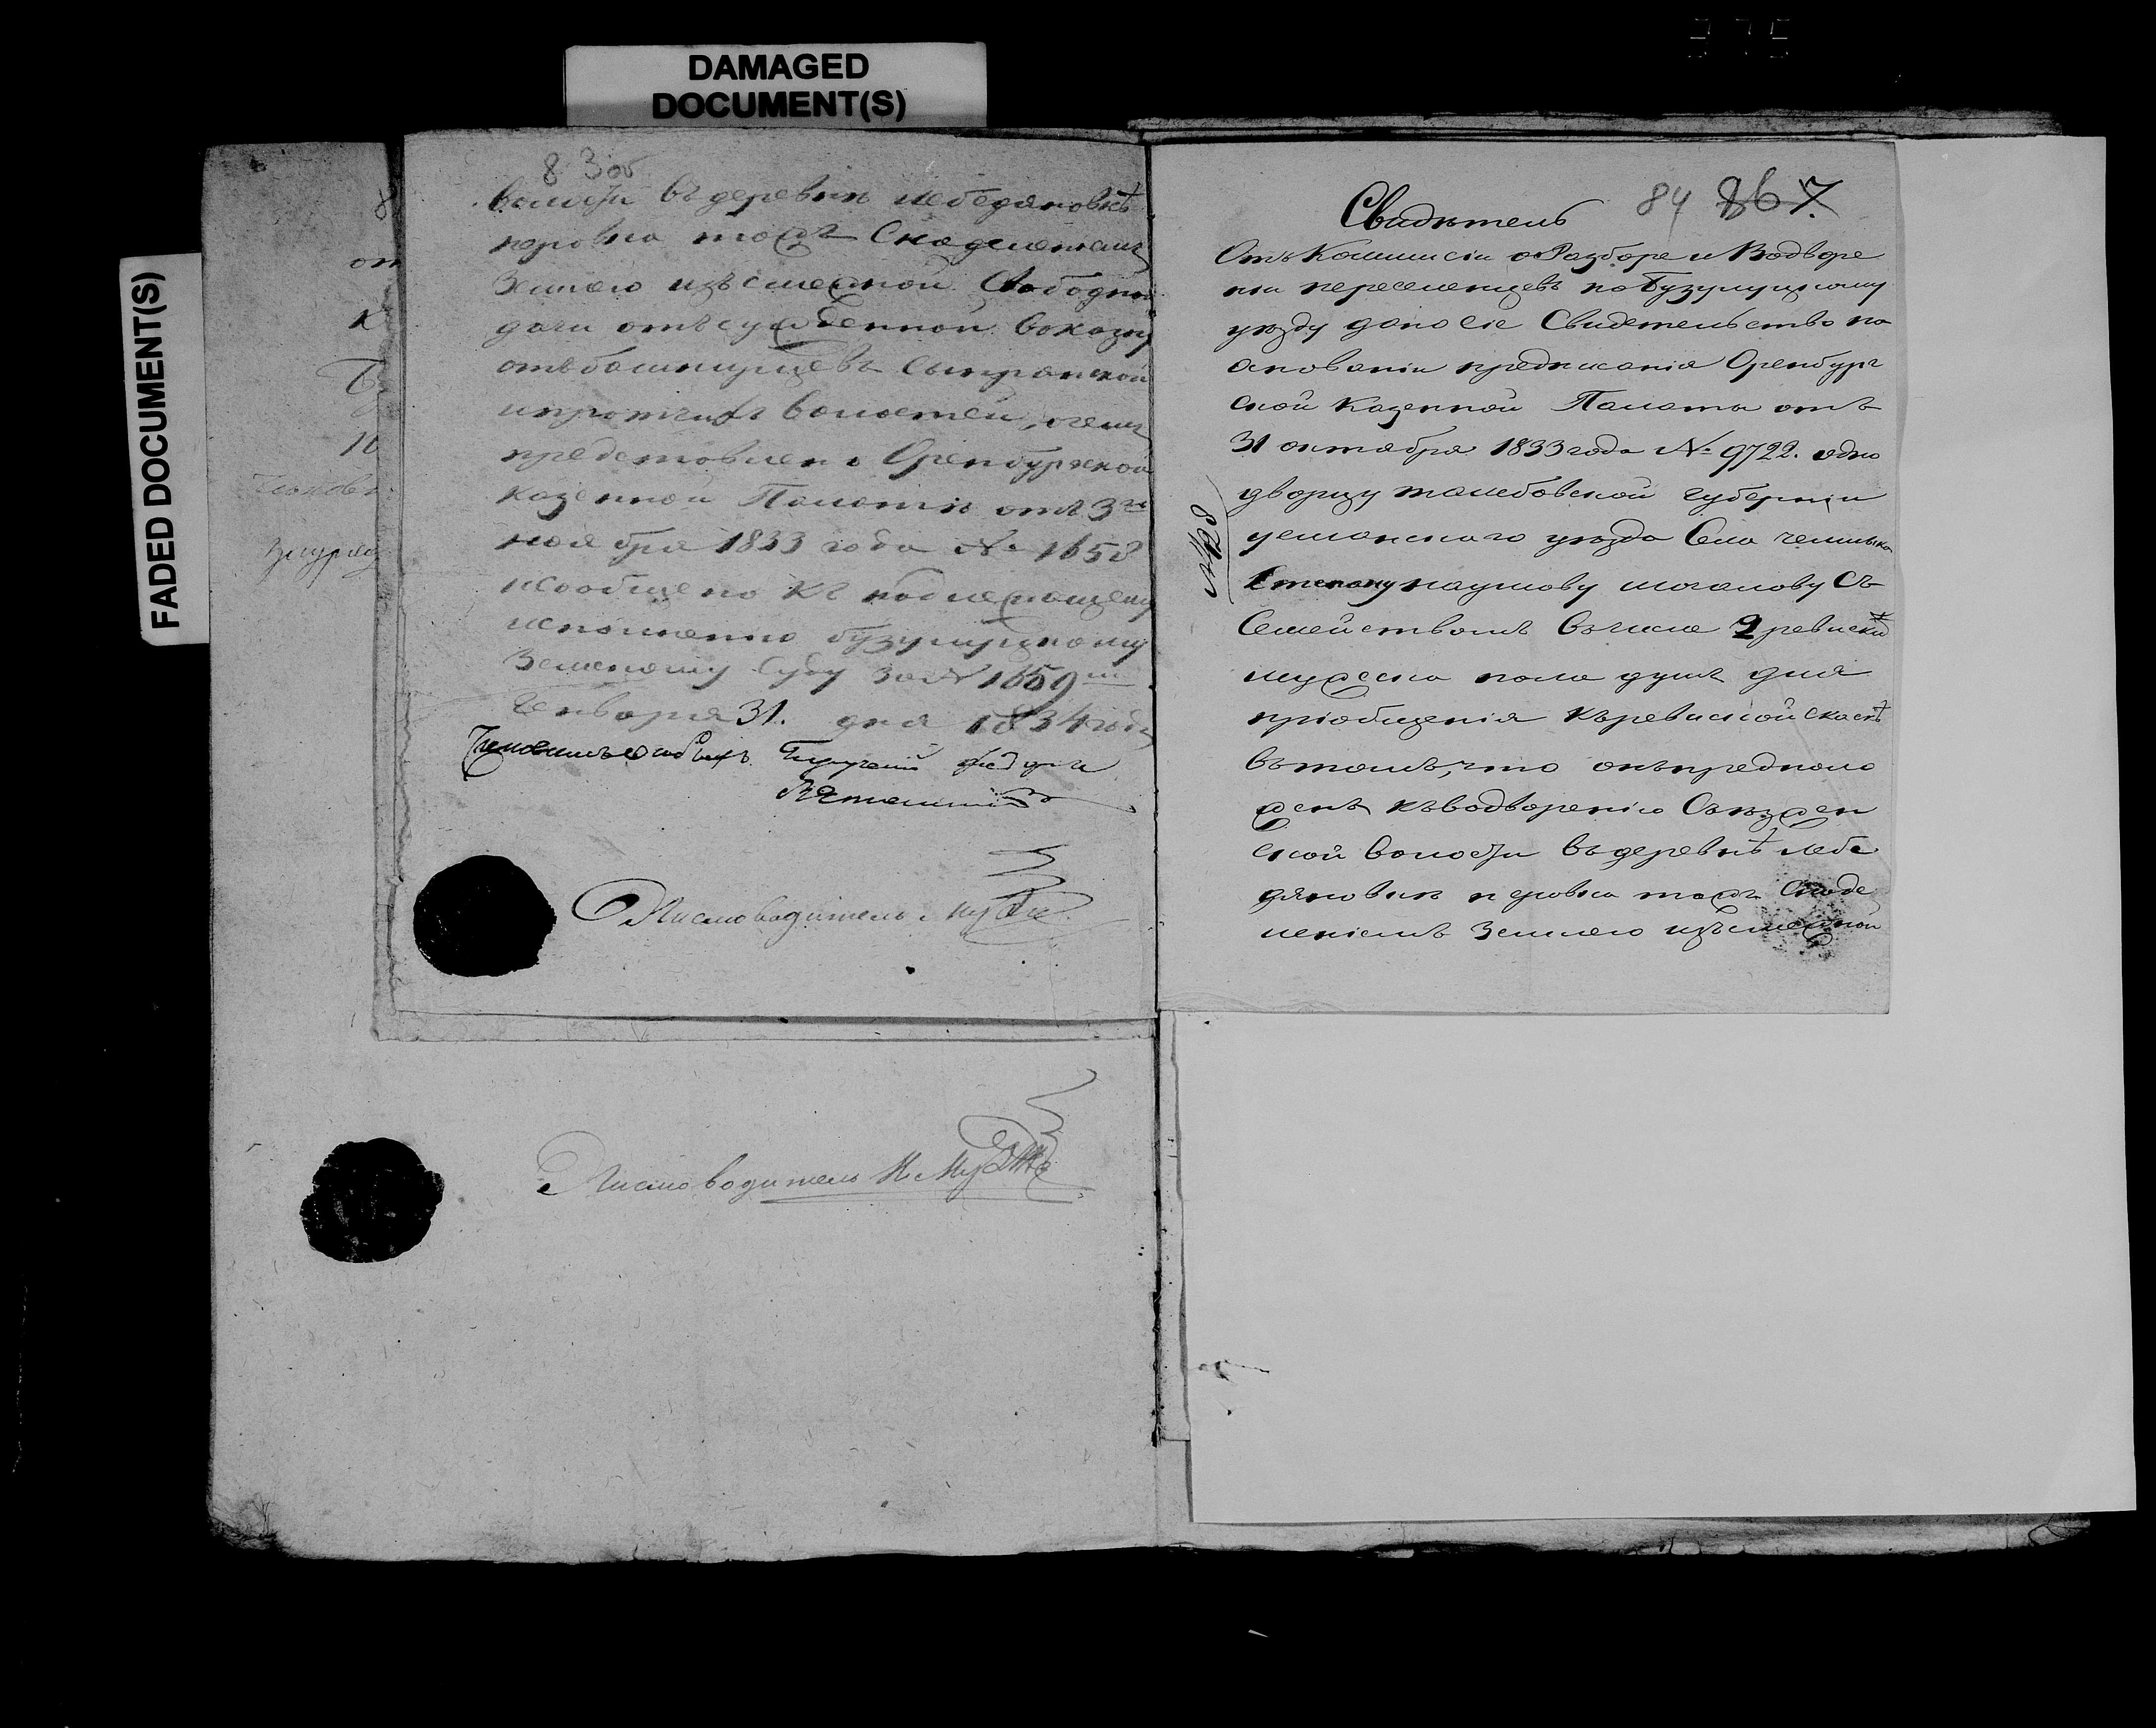 DAMAGED
DOCUMENT(S)
FADED DOCUMENT(S)
83об
волости въ деревни лебедяновкѣ
перовка тожъ Снаделениемъ
Землею изъ смежной Свободной
дачи отъсужденной вказну
отъбашкирцевъ
ипротчихъ волостей, очемъ
представлено Оренбургской
казенной Палатѣ отъ 3го
ноября 1833 года № 1658
исообщено къ надлежащему
исполнению бузулуцкому
Земскому Суду за № 1659м
Генваря 31. дня 1834 года
Поручикъ
Писмоводитель
Писмоводитель
84 867.
Свидѣтель
Отъ Коммисіи о Разборе и Водворе
нии переселенцевъ побузулуцкому
уѣзду дано сіе Свидетельство на
основаніи предписанія Оренбург
ской Казенной Палаты отъ
31 октября 1833 года № 9722. одно
дворцу тамбовской губерніи
усманскаго уѣзда Села
Степану наумову могалову Съ
Семействомъ вчисле 2 ревиски
мужеска пола душъ для
пріобщенія къревиской скаскѣ
втомъ, что онъпредполо
женъ къводворенію Съезжен
ской волости въдеревнѣ лебе
дяновкѣ перовка тожъ Снаде
леніемъ Землею изъсмежной
№ 428